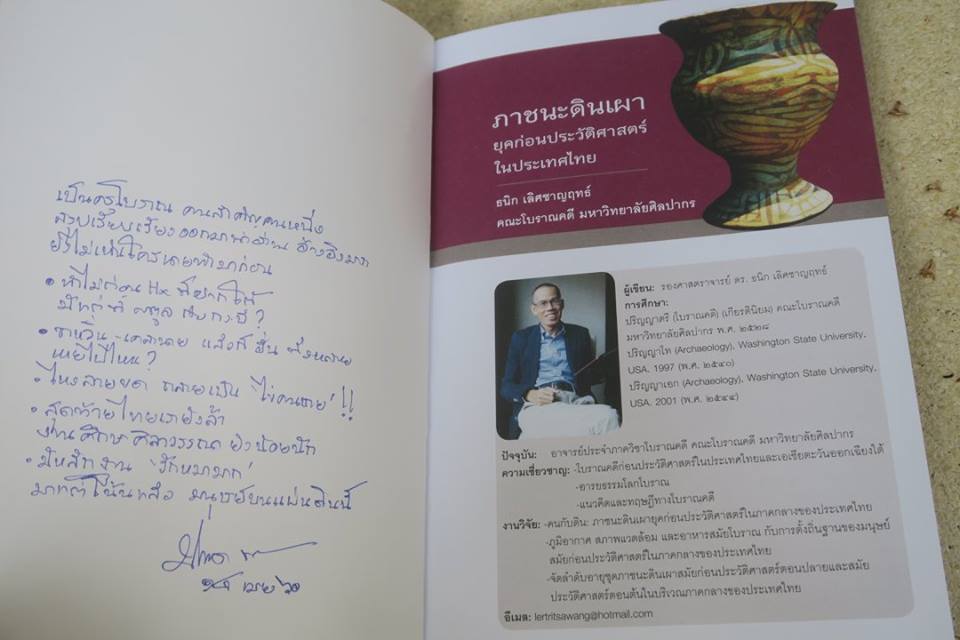 เป็นครูโบราณ คนสำคัญคนหนึ่ง
ออกมา อ้างอิงมาก
ยังไม่เห็นใครเคยทำมาก่อน
• ทำไม
มี ?
• แล้วก็ ทั้งหลาย
หายไปไหน?
• ไหลายยด กลายเป็น !!
• สุดท้ายไทยเรายังล้ำ
งานศึกษา ยังน้อยนัก
• มีหลักงาน
มนุษย์บนแผ่นดินนี้
ภาชนะดินเผา
ยุคก่อนประวัติศาสตร์
ในประเทศไทย
ธนิก เลิศชาญฤทธ์
คณะโบราณคดี มหาวิทยาลัยศิลปากร
ผู้เขียน: รองศาสตราจารย์ ดร. ธนิก เลิศชาญฤทธ์
การศึกษา:
ปริญญาตรี (โบราณคดี) (เกียรตินิยม) คณะโบราณคดี
มหาวิทยาลัยศิลปากร พ.ศ. ๒๕๒๘
ปริญญาโท (Archaeology), Washington State University,
USA. 1997 (พ.ศ. ๒๕๔๐)
ปริญญาเอก (Archaeology), Washington State University,
USA. 2001 (พ.ศ. ๒๕๔๔)
ปัจจุบัน: อาจารย์ประจำภาควิชาโบราณคดี คณะโบราณคดี มหาวิทยาลัยศิลปากร
ความเชี่ยวชาญ: -โบราณคดีก่อนประวัติศาสตร์ในประเทศไทยและเอเชียตะวันออกเฉียงใต้
-อารยธรรมโลกโบราณ
-แนวคิดและทฤษฎีทางโบราณคดี
งานวิจัย: -คนกับดิน: ภาชนะดินเผายุคก่อนประวัติศาสตร์ในภาคกลางของประเทศไทย
-ภูมิอากาศ สภาพแวดล้อม และอาหารสมัยโบราณ กับการตั้งถิ่นฐานของมนุษย์
สมัยก่อนประวัติศาสตร์ในภาคกลางของประเทศไทย
-จัดลำดับอายุชุดภาชนะดินเผาสมัยก่อนประวัติศาสตร์ตอนปลายและสมัย
ประวัติศาสตร์ตอนต้นในบริเวณภาคกลางของประเทศไทย
อีเมล: lertritsawang@hotmail.com